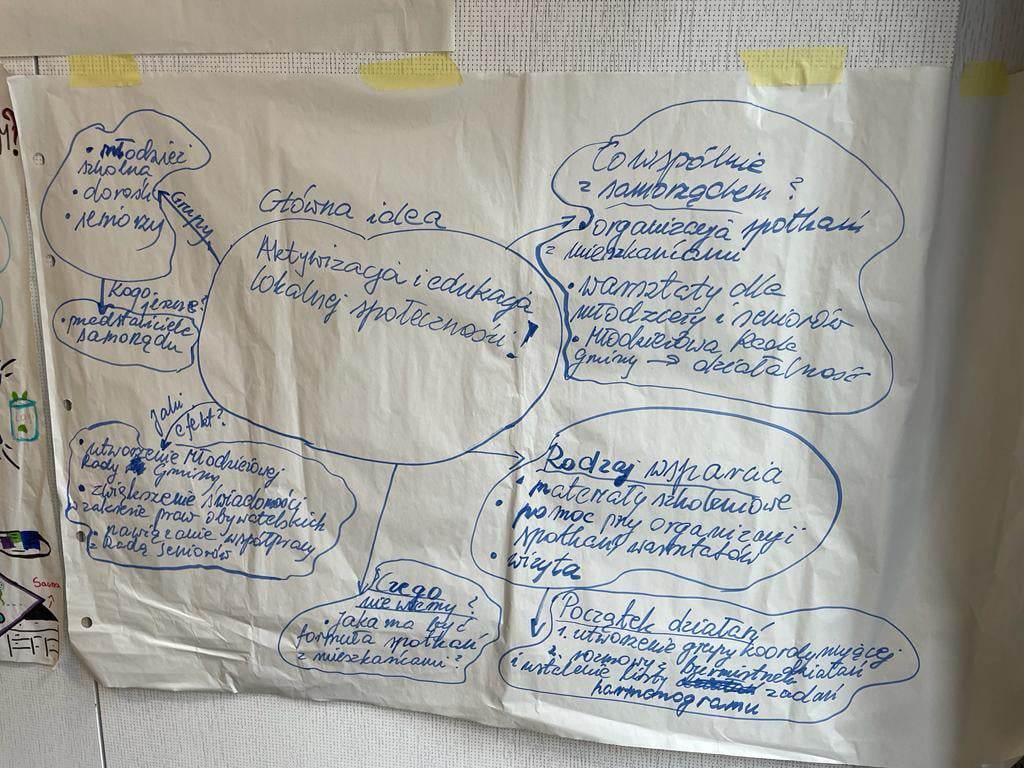 • młodzież
szkolna
• dorośli
• seniorzy
Grupy
Kogo
jeszcze?
• przedstawiciele
samorządu
Główna idea
Aktywizacja i edukacja
lokalnej społeczności!
Co wspólnie
z samorządem?
• organizacja spotkań
z mieszkańcami
• warsztaty dla
młodzieży i seniorów
• Młodzieżowa Rada
gminy → działalność
Jaki
efekt?
• utworzenie Młodzieżowej
Rady Gminy
• zwiększenie świadomości
zakresie praw obywatelskich
• nawiązanie współpracy
z Radą Seniorów
Rodzaj wsparcia
• materiały szkoleniowe
• pomoc przy organizacji
spotkań, warsztatów
• wizyta
Czego
nie wiemy?
• jaka ma być
formuła spotkań
z mieszkańcami?
Początek działań
1. utworzenie grupy koordynującej
działań
2. rozmowy z burmistrzem
i ustalenie listy zadań
harmonogramu
Sauna